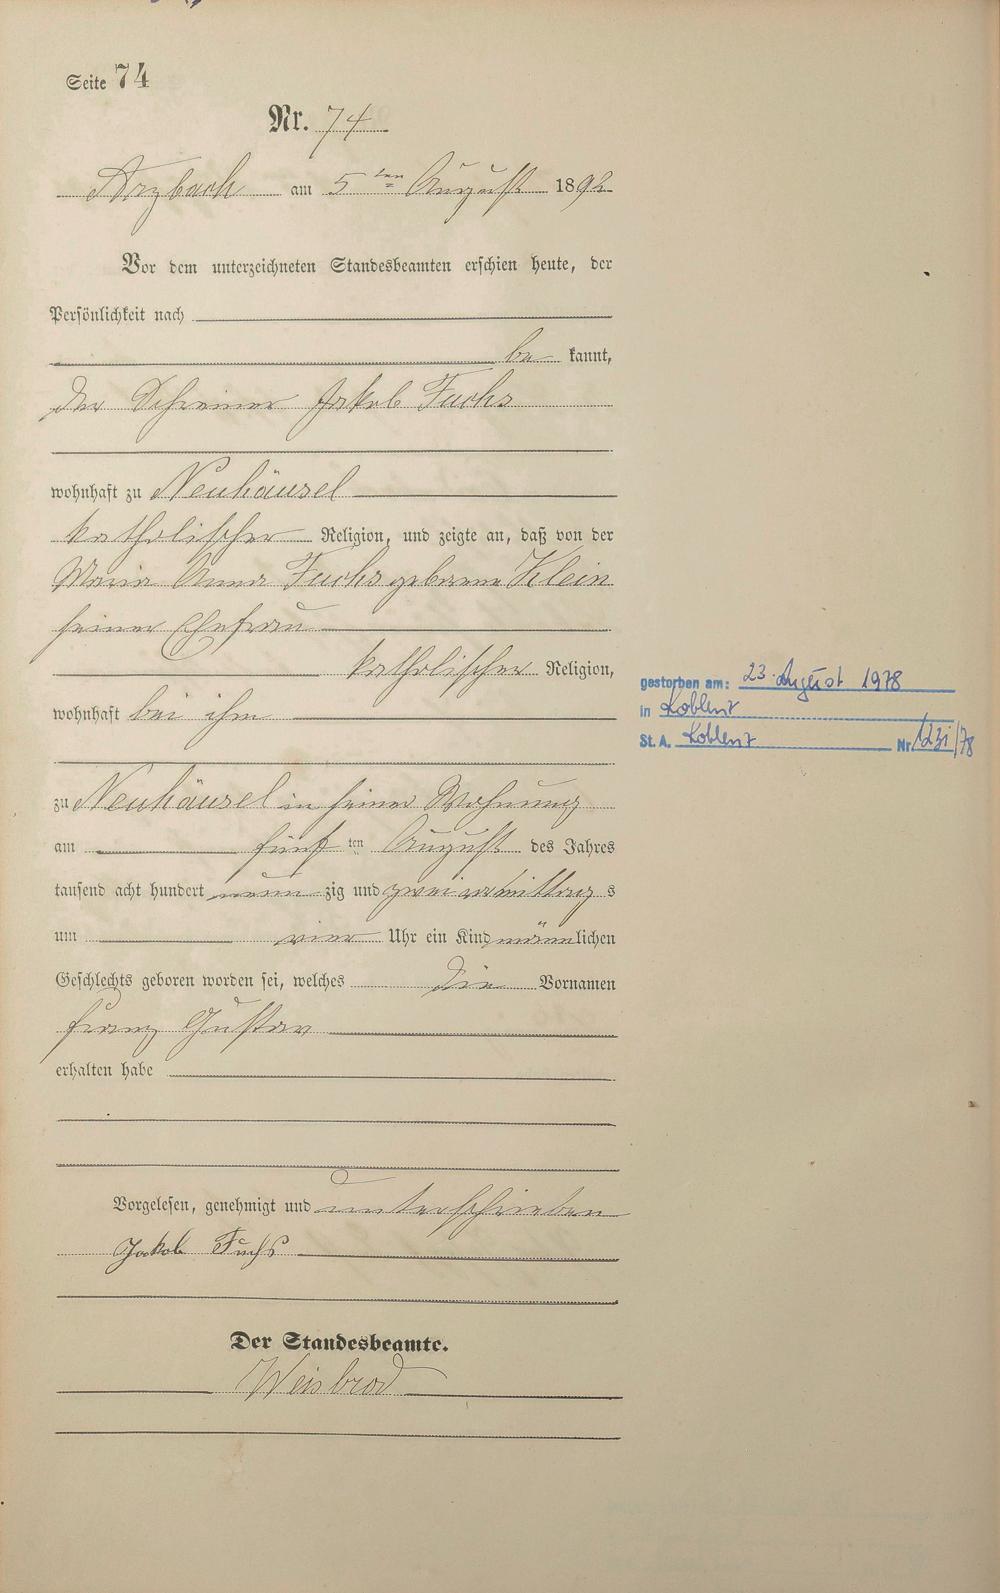 Seite 74
Nr. 74
Arzbach am 5ten August 1892
Vor dem unterzeichneten Standesbeamten erschien heute, der
Persönlichkeit nach
be kannt,
der Schreiner Jakob Fuchs
wohnhaft zu Neuhäusel
katholischer Religion, und zeigte an, daß von der
Maria Anna Fuchs geborene Klein
seiner Ehefrau
katholischer Religion,
wohnhaft bei ihm
zu Neuhäusel in seiner Wohnung
am fünf ten August des Jahres
tausend acht hundert neun zig und zwei vormittag s
um vier Uhr ein Kind männlichen
Geschlechts geboren worden sei, welches die Vornamen
Franz Gustav
erhalten habe
Vorgelesen, genehmigt und unterschrieben
Jakob Fuchs
Der Standesbeamte.
Weisbrod
gestorben am: 23. August 1978
in Koblenz
St. A. Koblenz Nr 1231/78